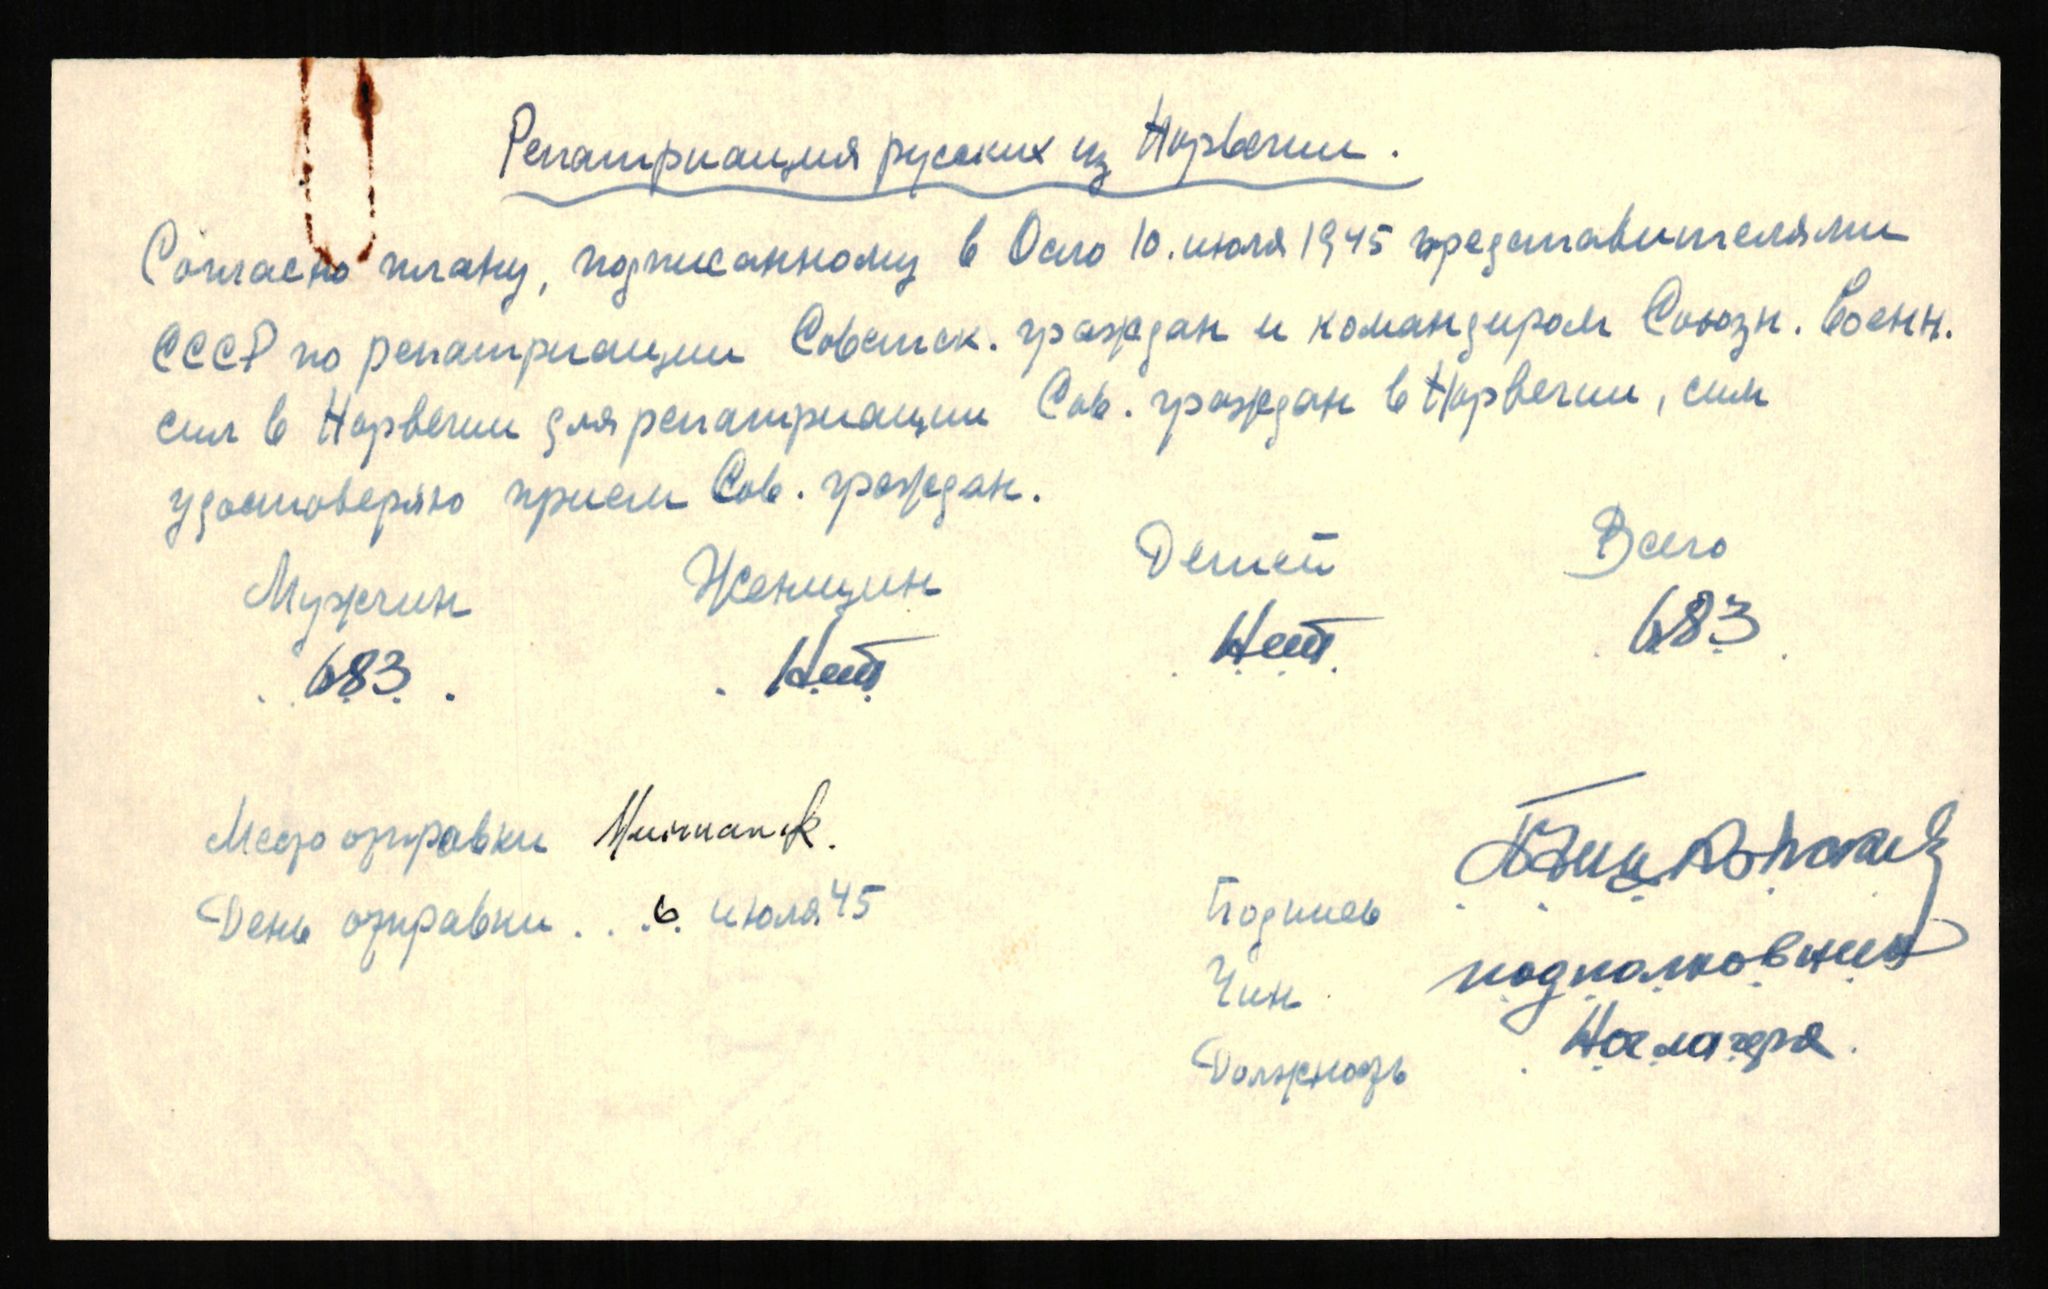 Репатриация русских из Норвегии.
Согласно плану, подписанному в Осло 10. июля 1945 представителями
СССР по репатриации Советск. граждан и командиром Союзн. Военн.
сил в Норвегии для репатриации Сов. граждан в Норвегии, сим
удостоверяю прием Сов. граждан.
Мужчин Женщин Детей Всего
683 Нет Нет 683
Место отправки Murmansk.
День отправки . . . 6 июля 45
Подпись
Чин подполковник
Должность Нач лагеря.